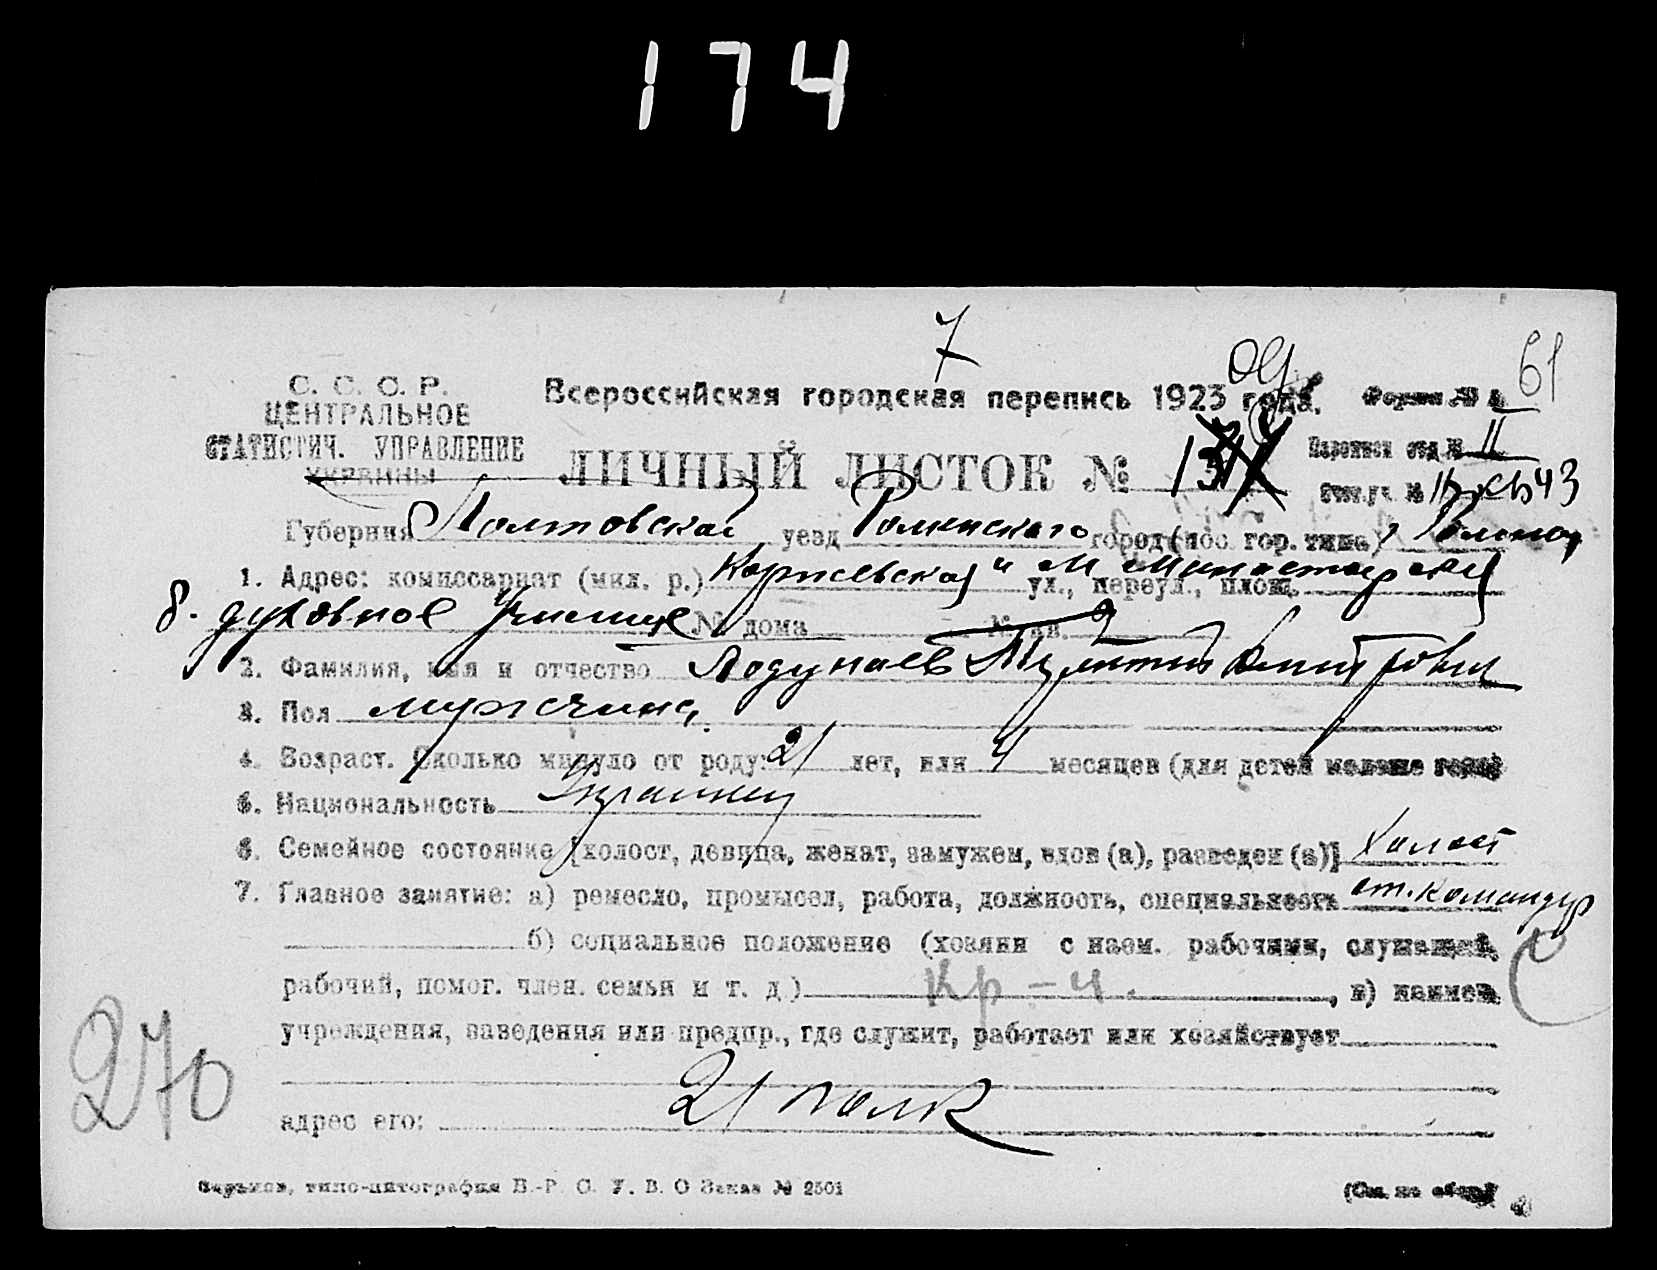 174
7
61
С. С. С. Р. Всероссийская городская перепись 1923 года. Форма № А
ЦЕНТРАЛЬНОЕ
СТАТИСТИЧ. УПРАВЛЕНИЕ
УКРАИНЫ
ЛИЧНЫЙ ЛИСТОК №
43
Губерния Полтовская уезд Роменского город (пос. гор. типа) Ромны
1. Адрес: комиссариат (мил. р.) ул., переул., площ.
б. духовное Училище № дома № кв.
2. Фамилия, имя и отчество Дмитрович
3. Пол мужчина
4. Возраст. Сколько минуло от роду: 21 лет, или 4 месяцев (для детей моложе года)
5. Национальность Украинец
6. Семейное состояние [холост, девица, женат, замужем, вдов (а), разведен (а)] Холост
7. Главное занятие: а) ремесло, промысел, работа, должность, специальность от. командир
б) социальное положение (хозяин с наем. рабочими, служащий,
рабочий, помог. член. семьи и т. д.) Кр-ч. , в) наимен.
учреждения, заведения или предпр., где служит, работает или хозяйствует
270
21 полк
адрес его:
Харьков, типо-литография В.-Р. С. У. В. О Заказ № 2501 (См. на обор.)